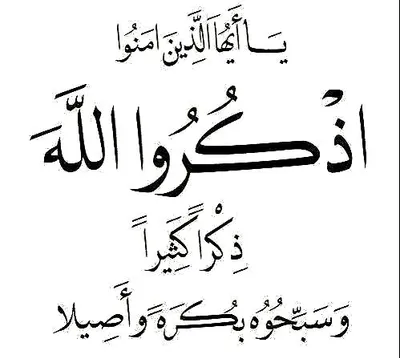 يَا أَيُّهَا الَّذِينَ امَنُوا
اذْكُرُوا اللَّهَ
ذِكْرًا كَثِيرًا
وَسَبِّحُوهُ بُكْرَةً وَأَصِيلًا